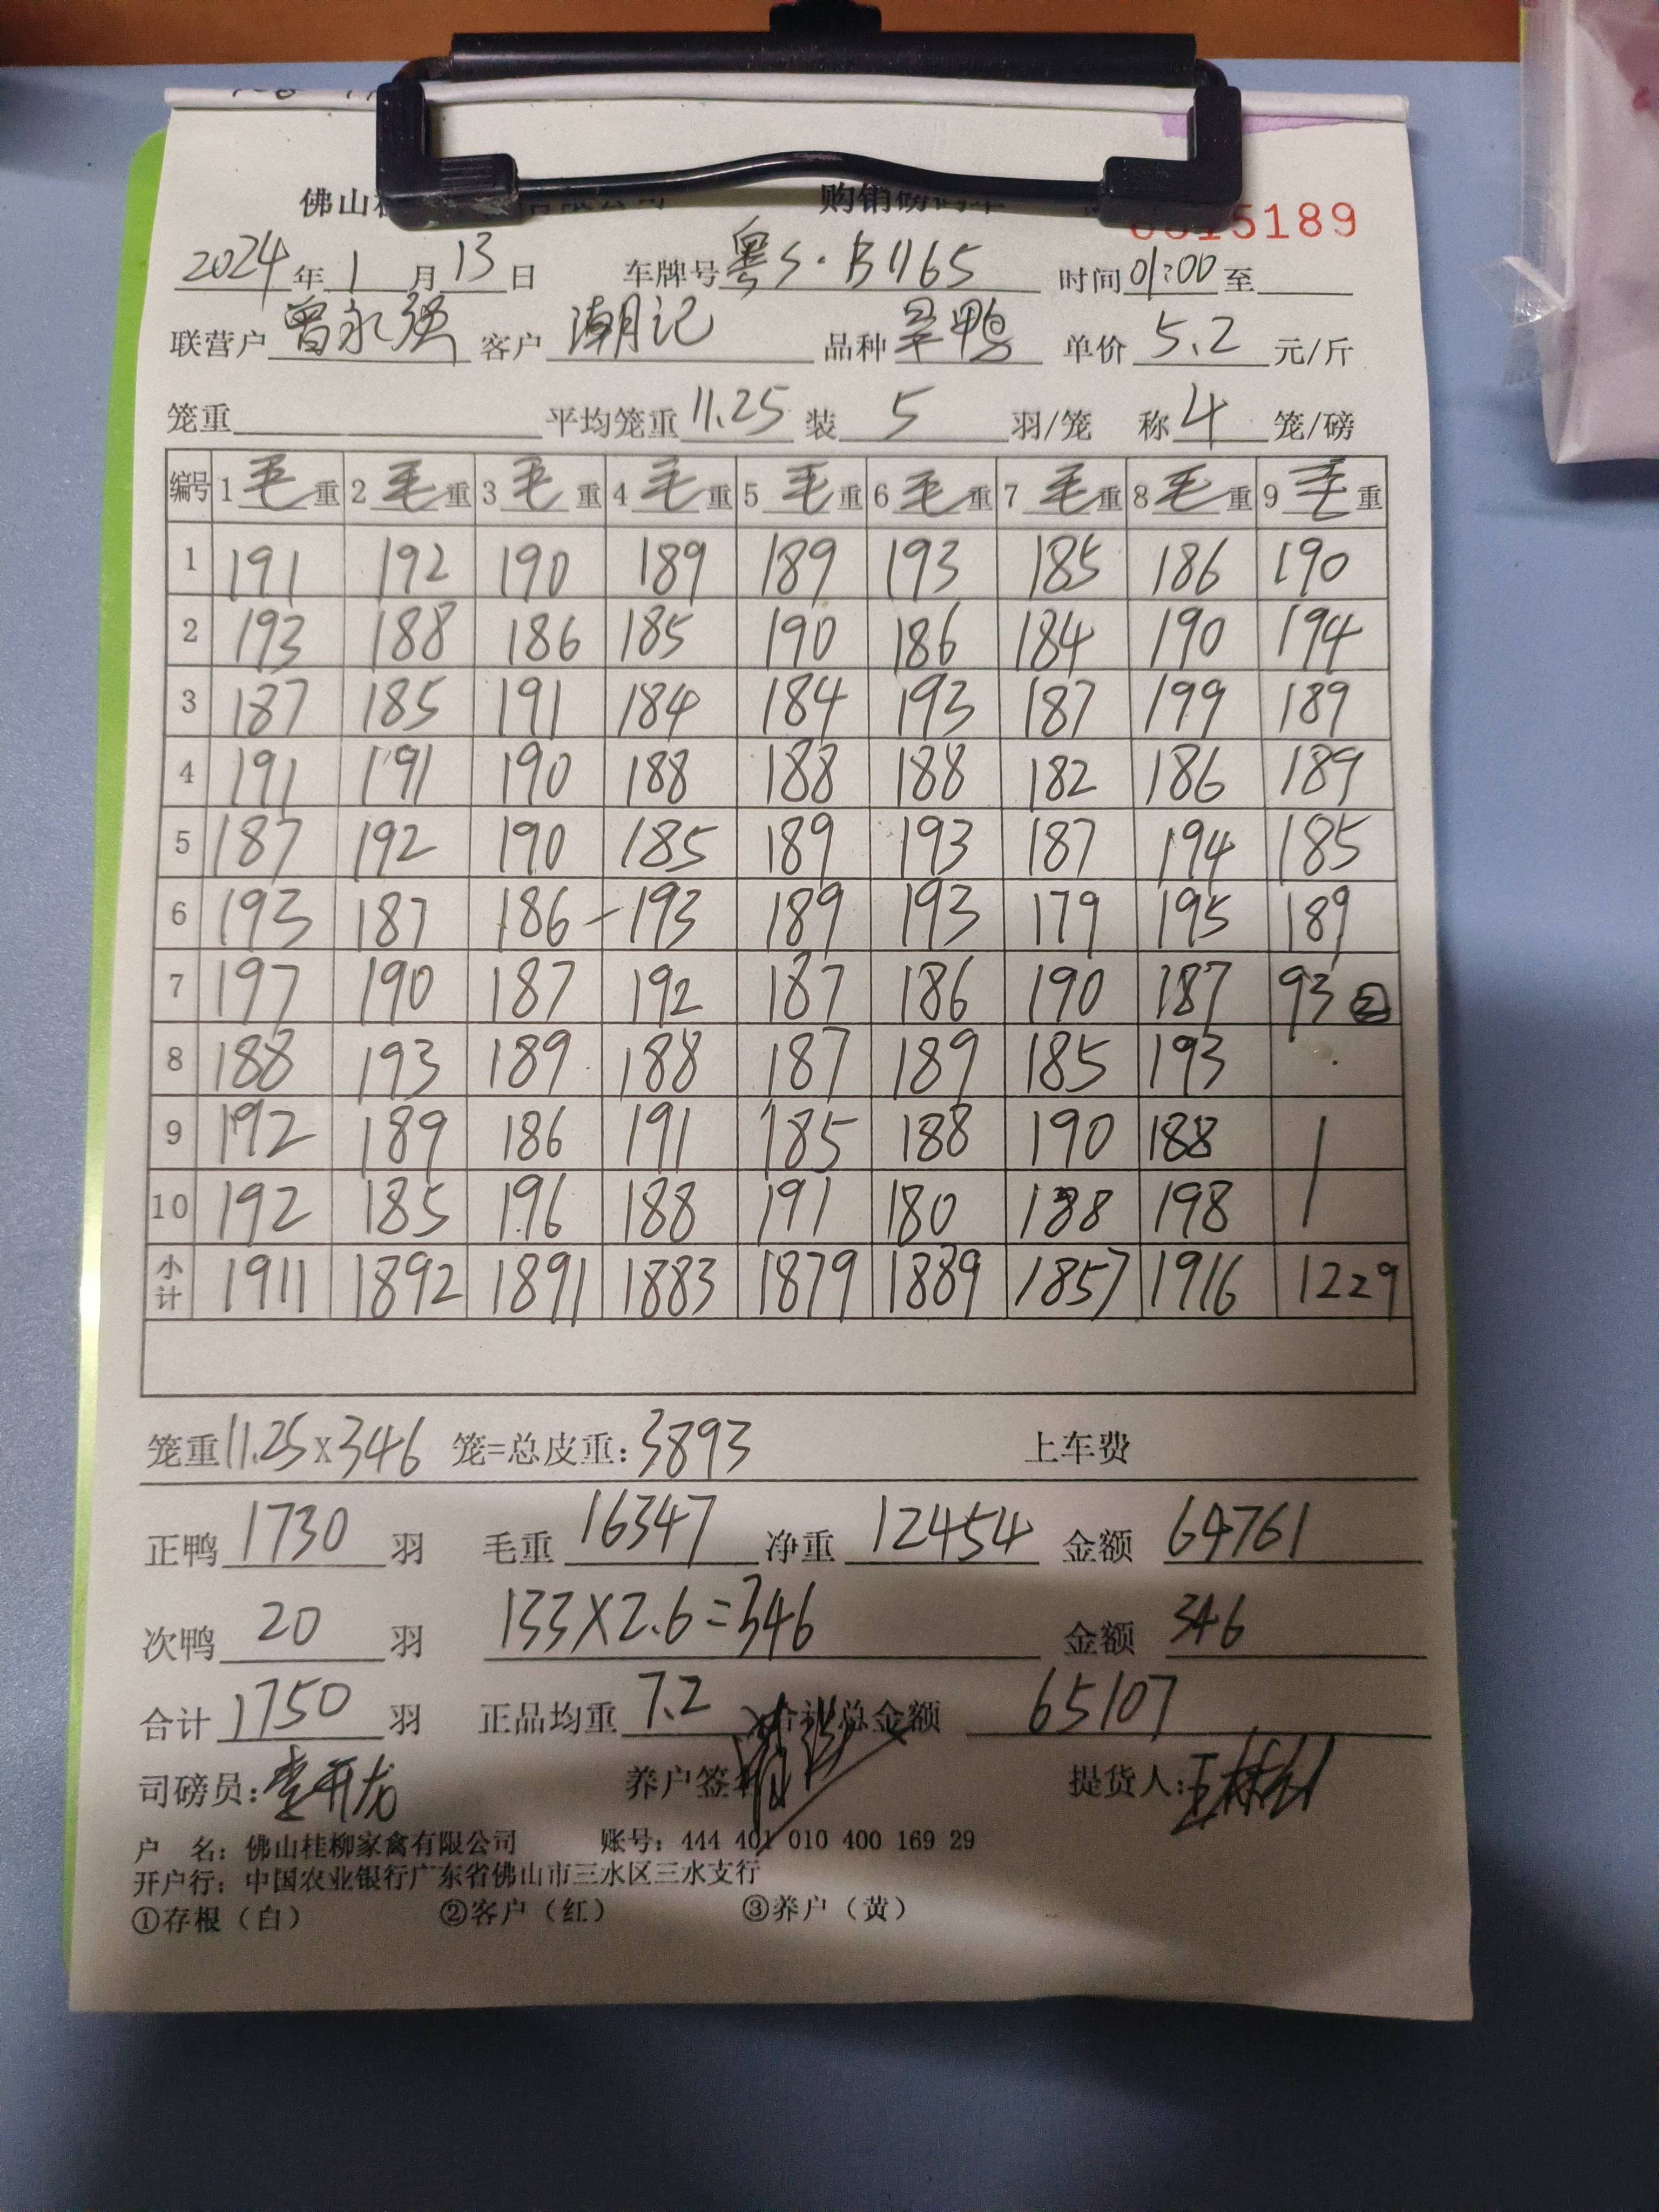 佛山 有限公司 购销磅码单 0815189
2024年1月13日 车牌号粤S·B1165 时间01:00至
联营户曾永强 客户潮记 品种旱鸭 单价5.2元/斤
笼重 平均笼重11.25装5羽/笼 称4笼/磅
编号 1毛重 2毛重 3毛重 4毛重 5毛重 6毛重 7毛重 8毛重 9毛重
1 191 192 190 189 189 193 185 186 190
2 193 188 186 185 190 186 184 190 194
3 187 185 191 184 184 193 187 199 189
4 191 191 190 188 188 188 182 186 189
5 187 192 190 185 189 193 187 194 185
6 193 187 186 193 189 193 179 195 189
7 197 190 187 192 187 186 190 187 93②
8 188 193 189 188 187 189 185 193
9 192 189 186 191 185 188 190 188
10 192 185 196 188 191 180 188 198
小计 1911 1892 1891 1883 1879 1889 1857 1916 1229
笼重11.25x346 笼=总皮重:3893 上车费
正鸭1730羽 毛重16347 净重12454 金额64761
次鸭20羽 133X2.6=346 金额346
合计1750羽 正品均重7.2 合计总金额65107
司磅员: 养户签 提货人:
户 名:佛山桂柳家禽有限公司 账号:444 401 010 400 169 29
开户行:中国农业银行广东省佛山市三水区三水支行
①存根(白) ②客户(红) ③养户(黄)